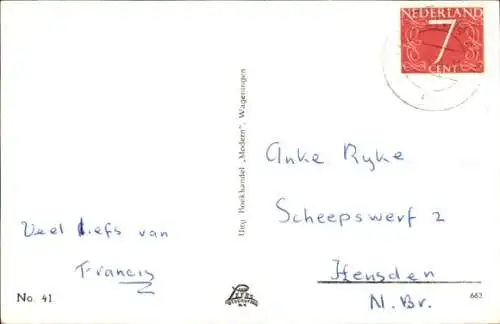 NEDERLAND
7
CENT
Uitg. Boekhandel „Modern", Wageningen
Anke Ryke
Scheepswerf 2
Heusden
N. Br.
Veel liefs van
Francis
No. 41
662